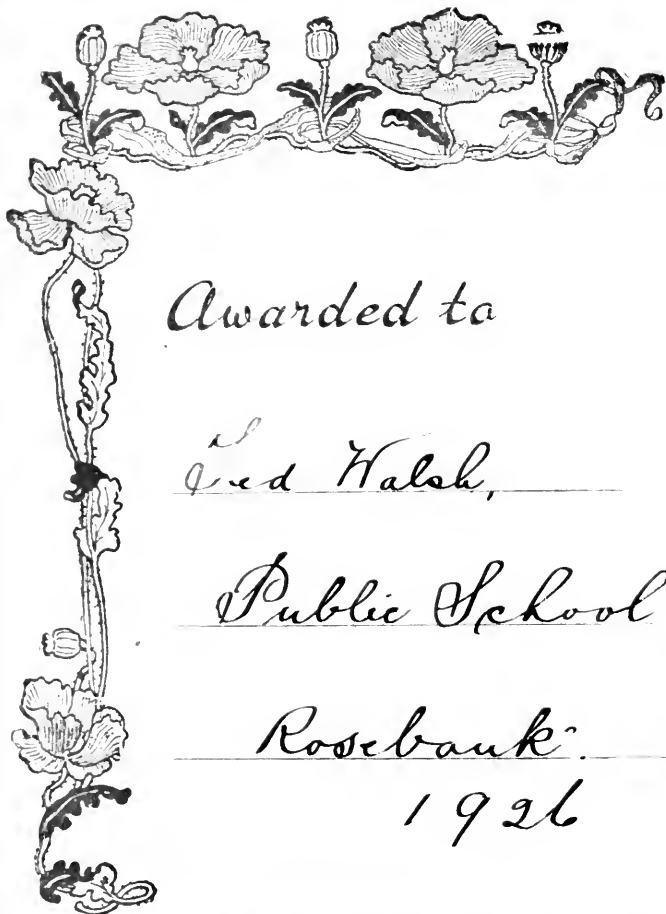 Awarded to
Ted Walsh,
Public School
Rosebank.
1926